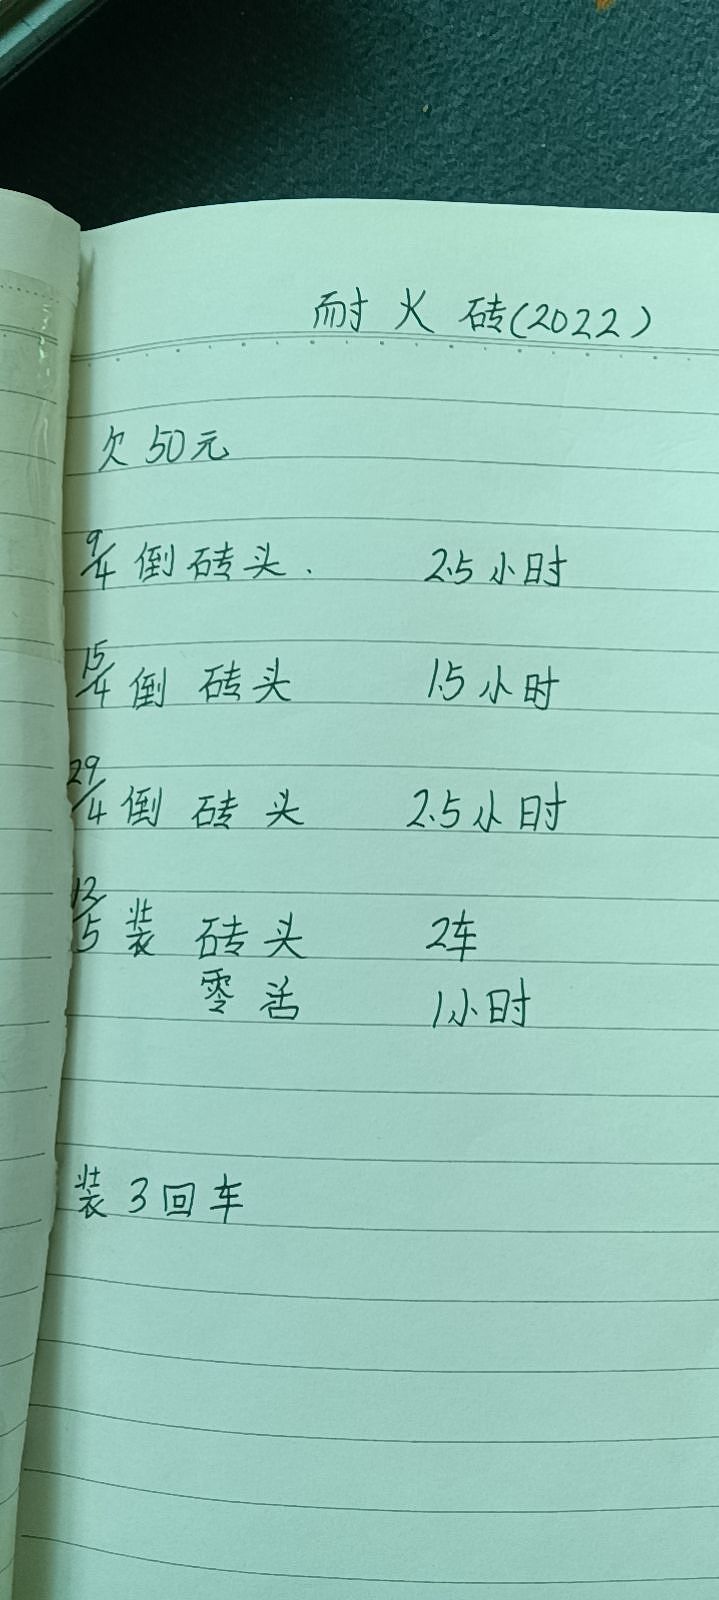 耐火砖(2022)
欠50元
9/4 倒砖头. 2.5小时
15/4 倒砖头 1.5小时
29/4 倒砖头 2.5小时
12/5 装砖头 2车
零活 1小时
装3回车